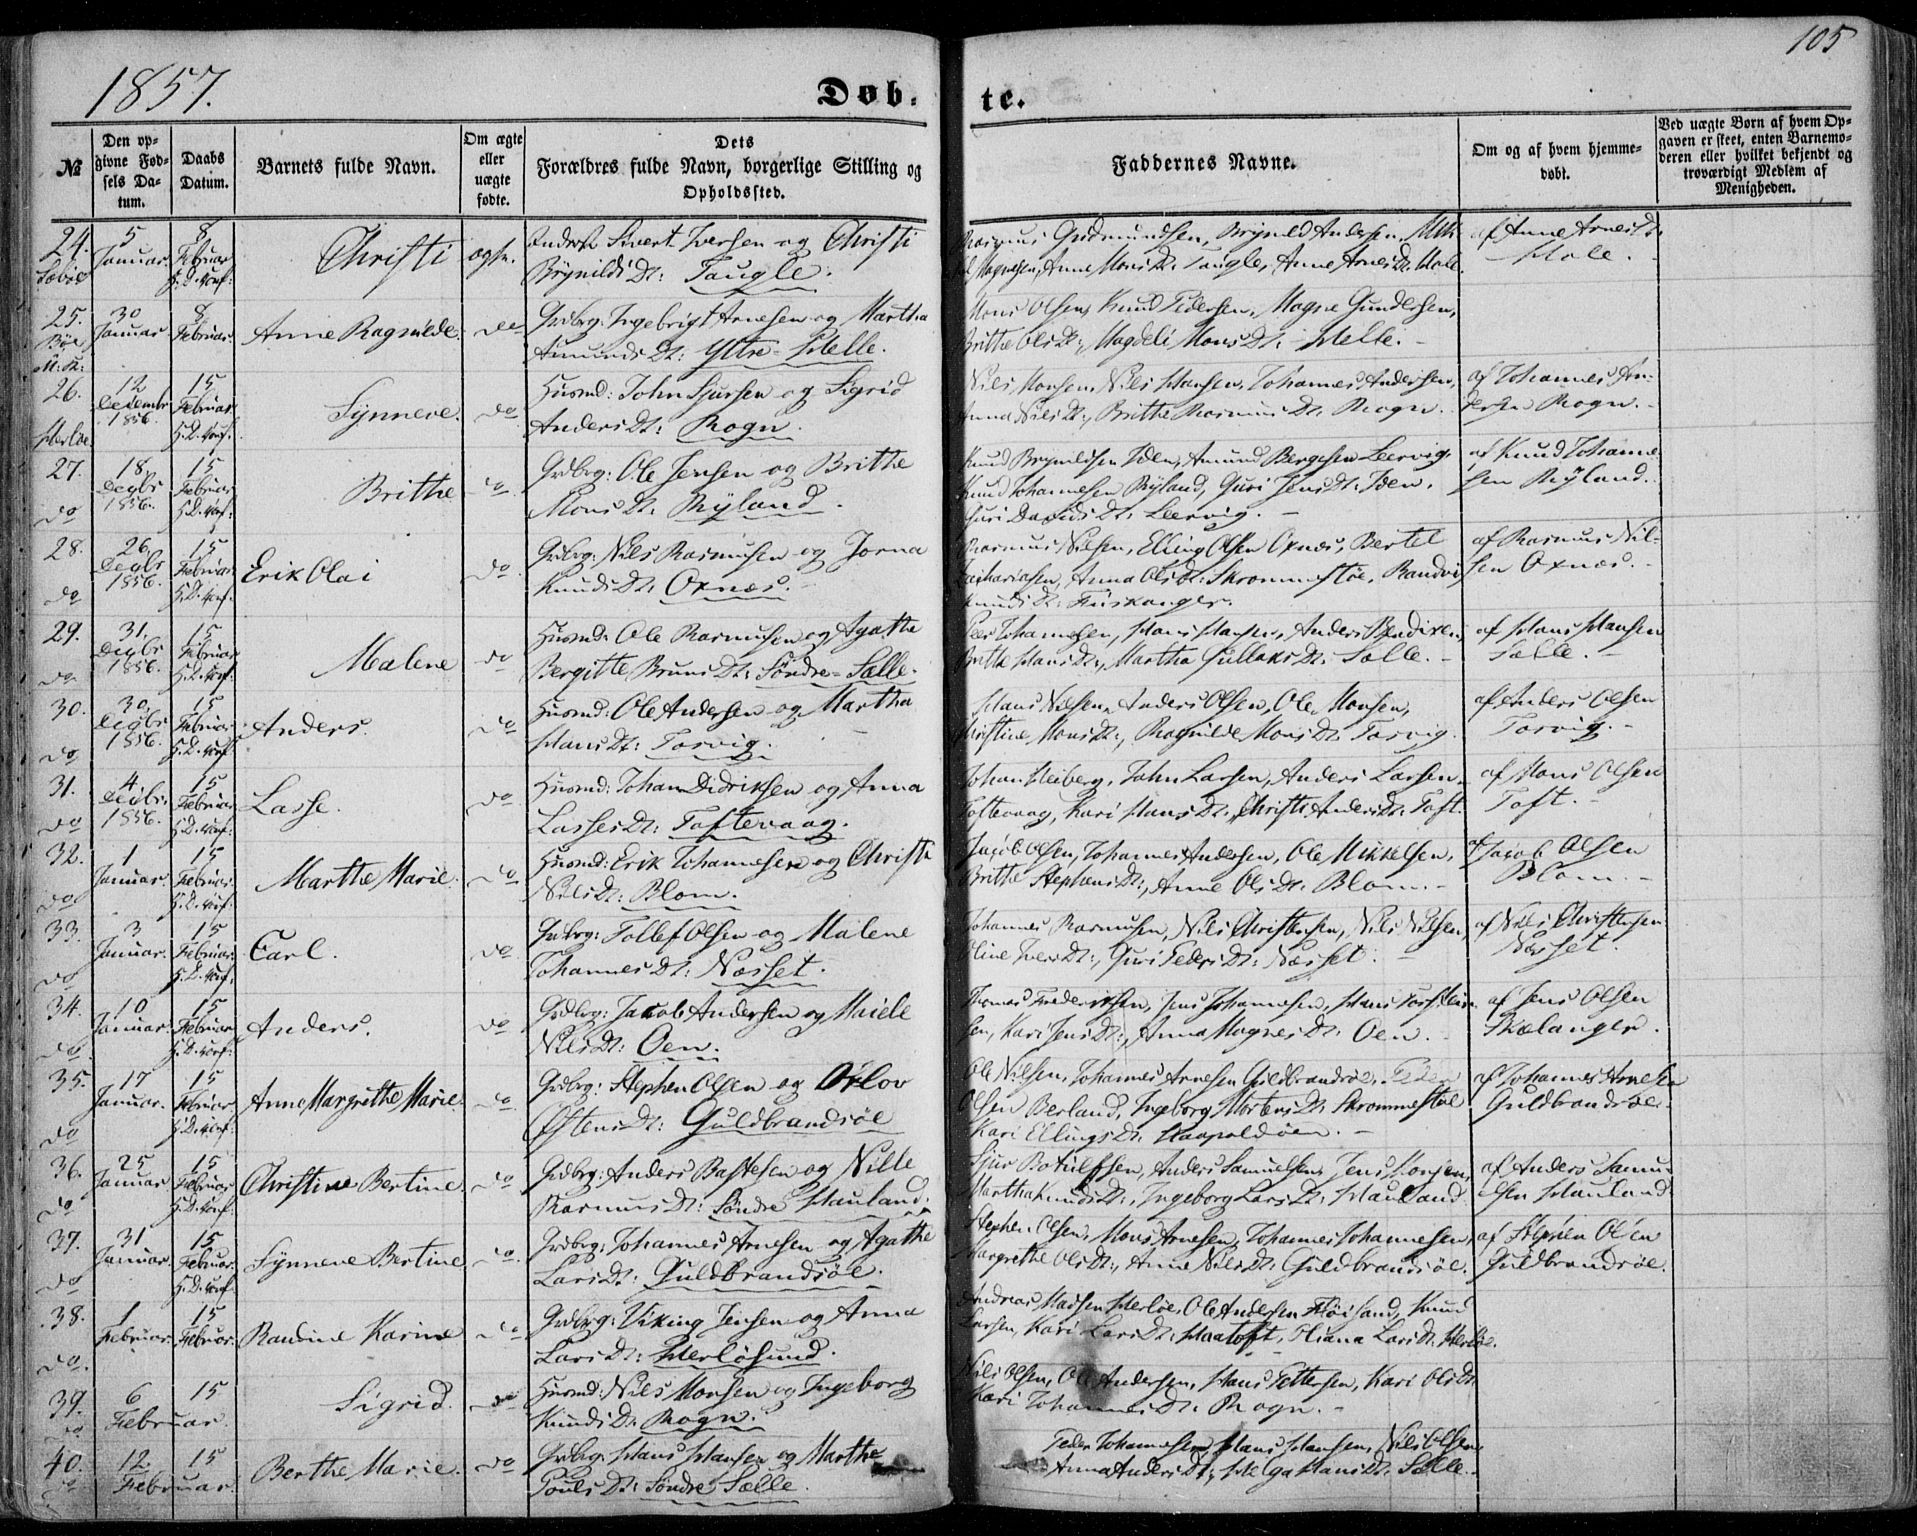 1857.
Døb-
te.
105
№
Den op-
givne Fød-
sels Da-
tum.
Daabs
Datum.
Barnets fulde Navn.
Om ægte
eller
uægte
fødte.
Dets
Forældres fulde Navn, borgerlige Stilling og
Opholdssted.
Faddernes Navne.
Om og af hvem hjemme-
døbt.
Ved uægte Børn af hvem Op-
gaven er skeet, enten Barnemo-
deren eller hvilket bekjendt og
troværdigt Medlem af
Menigheden.
24. 5 Januar. 8 Februar H. D. conf: Christi ægte. Sivert Iversen og Christi
Brynilds Dt: Taugle.
Rasmus Gudmundsen, Brynild Andersen,
Magnesen, Anne Mons Dt. Taugle, Anne Arnes Dt. Hole.
af Anne Arnes Dt.
Hole.
25. 30 Januar 8 Februar Anne Ragnilde. do Grdbrg: Ingebrigt Arnesen og Martha
Amunds Dt: Yttre-Melle.
Mons Olsen, Knud Pedersen, Magne Gundersen,
Brithe Ols Dt., Magdeli Mons Dt. Melle.
26. Herløe 12 Decembr 1856. 15 Februar H. D. conf: Synneve. do Husmd: John Sjursen og Sigrid
Anders Dt: Rogn.
Nils Monsen, Nils Hansen, Johannes Andersen,
Anna Nils Dt., Brithe Rasmus Dt. Rogn.
af Johannes An-
dersen Rogn.
27. do 18 Decbr 1856. 15 Februar H. D. conf: Brithe do. Grdbrg: Ole Jensen og Brithe
Mons Dt: Ryland.
Knud Brynildsen Iden, Amund Bergesen Leervig,
Knud Johannesen Ryland, Guri Jens Dt. Iden,
Guri Davids Dt. Leervig.
af Knud Johanne-
sen Ryland.
28. do 26 Decbr 1856. 15 Februar H. D. conf: Erik Olai do. Grdbrg: Nils Rasmusen og Jorna
Knuds Dt: Oxnæs.
Rasmus Nilsen, Elling Olsen Oxnæs, Bertel
Zachariasen, Anna Ols Dt. Skrommestøe, Randvi
Knuds Dt. Fuskanger.
af Rasmus Nil-
sen Oxnæs.
29. do. 31. Decbr 1856. 15 Februar H. D. conf: Malene do Husmd: Ole Rasmusen og Agathe
Bergitte Bruns Dt: Søndre-Sælle.
Peer Johannesen, Hans Hansen, Anders Bendixen,
Brithe Hans Dt., Martha Gullaks Dt. Sælle.
af Hans Hansen
Sælle.
30. do 30. Decbr 1856. 15 Februar H. D. conf: Anders. do Husmd: Ole Andersen og Martha
Hans Dt: Torvig.
Hans Nilsen, Anders Olsen, Ole Monsen,
Christine Mons Dt., Ragnilde Mons Dt. Torvig.
af Anders Olsen
Torvig.
31. do 4 Decbr. 1856. 15 Februar H. D. conf: Lasse. do Husmd: Johan Didriksen og Anna
Lasses Dt: Toftevaag.
Johan Heiberg, John Larsen, Anders Larsen
Toftevaag, Kari Hans Dt., Christi Anders Dt. Toft.
af Mons Olsen
Toft.
32. do 1 Januar. 15 Februar. H. D. conf: Marthe Marie. do Husmd: Erik Johannesen og Christi
Nils Dt: Blom.
Jacob Olsen, Johannes Andersen, Ole Mikkelsen,
Brithe Stephens Dt., Anne Ols Dt. Blom.
af Jacob Olsen
Blom.
33. do 3 Januar. 15 Februar. H. D. conf: Carl. do Grdbrg: Tollef Olsen og Malene
Johannes Dt: Næsset.
Johannes Rasmusen, Nils Christensen, Nils Nilsen,
Oline Ivers Dt., Guri Peders Dt. Næsset.
af Nils Christensen
Næsset.
34. do. 10 Januar. 15 Februar H. D. conf: Anders. do Grdbrg: Jacob Andersen og Maiele
Nils Dt: Oen.
Thomas Frederiksen, Jens Johannesen, Hans Torstein-
sen, Kari Jens Dt., Anna Magnes Dt. Oen.
af Jens Olsen
Skælanger.
35. do 17 Januar. 15 Februar H. D. conf: Anne Margrethe Marie do. Grdbrg: Stephen Olsen og Orlov
Østens Dt: Guldbrandsøe
Ole Nilsen, Johannes Arnesen Guldbrandsøe, Peder
Olsen Berland, Ingeborg Mortens Dt. Skrommestøe
Kari Ellings Dt.
af Johannes Arnesen
Guldbrandsøe.
36. do 25 Januar 15 Februar H. D. conf: Christine Bertine do Grdbrg: Anders Bastesen og Nille
Rasmus Dt: Søndre Hauland.
Sjur Botulfsen, Anders Samuelsen, Jens Monsen,
Martha Knuds Dt., Ingeborg Lars Dt. Hauland.
af Anders Samu-
elsen Hauland
37. do 31 Januar. 15 Februar. H. D. conf: Synneve Bertine do. Grdbrg: Johannes Arnesen og Agathe
Lars Dt: Guldbrandsøe.
Stephen Olsen, Mons Arnesen, Johannes Johannesen,
Margrethe Ols Dt., Anne Nils Dt. Guldbrandsøe.
af Stephen Olsen
Guldbrandsøe.
38. do. 1 Februar. 15 Februar. Raudine Karine do Grdbrg: Viking Jensen og Anna
Lars Dt: Herløsund.
Andreas Madsen Herløe, Ole Andersen Fløisand, Knud
Larsen, Kari Lars Dt. Haatoft, Oliana Lars Dt. Herløe.
39. do 6 15 Februar. Sigrid. do Husmd: Nils Monsen og Ingeborg
Knuds Dt: Rogn.
Nils Olsen, Ole Andersen, Hans Pettersen, Kari Ols Dt.
Kari Johannes Dt. Rogn.
40. do 12 15 Februar. Berthe Marie. do Grdbrg: Hans Hansen og Marthe
Pouls Dt: Søndre Sælle.
Peder Johannesen, Hans Hansen, Nils Olsen,
Anna Anders Dt., Helga Hans Dt. Sælle.